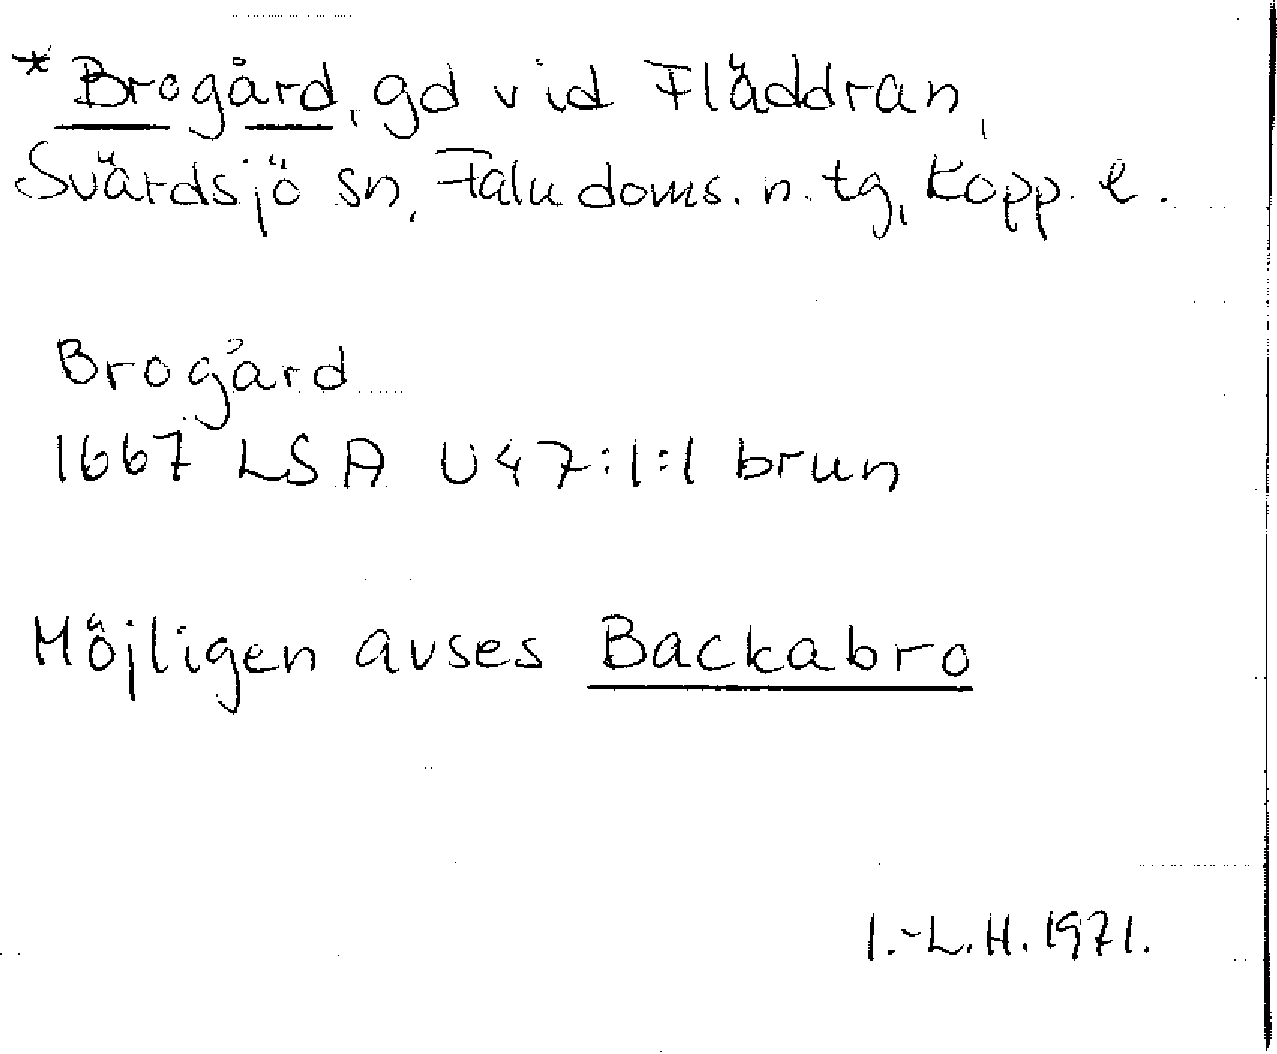 * Brogård, gd vid Fläddran,
Svärdsjö sn, Falu doms. n. tg, Kopp. l.
Brogård
1667 LSA U47:1:1 brun
Möjligen avses Backabro
I.-L.H. 1971.